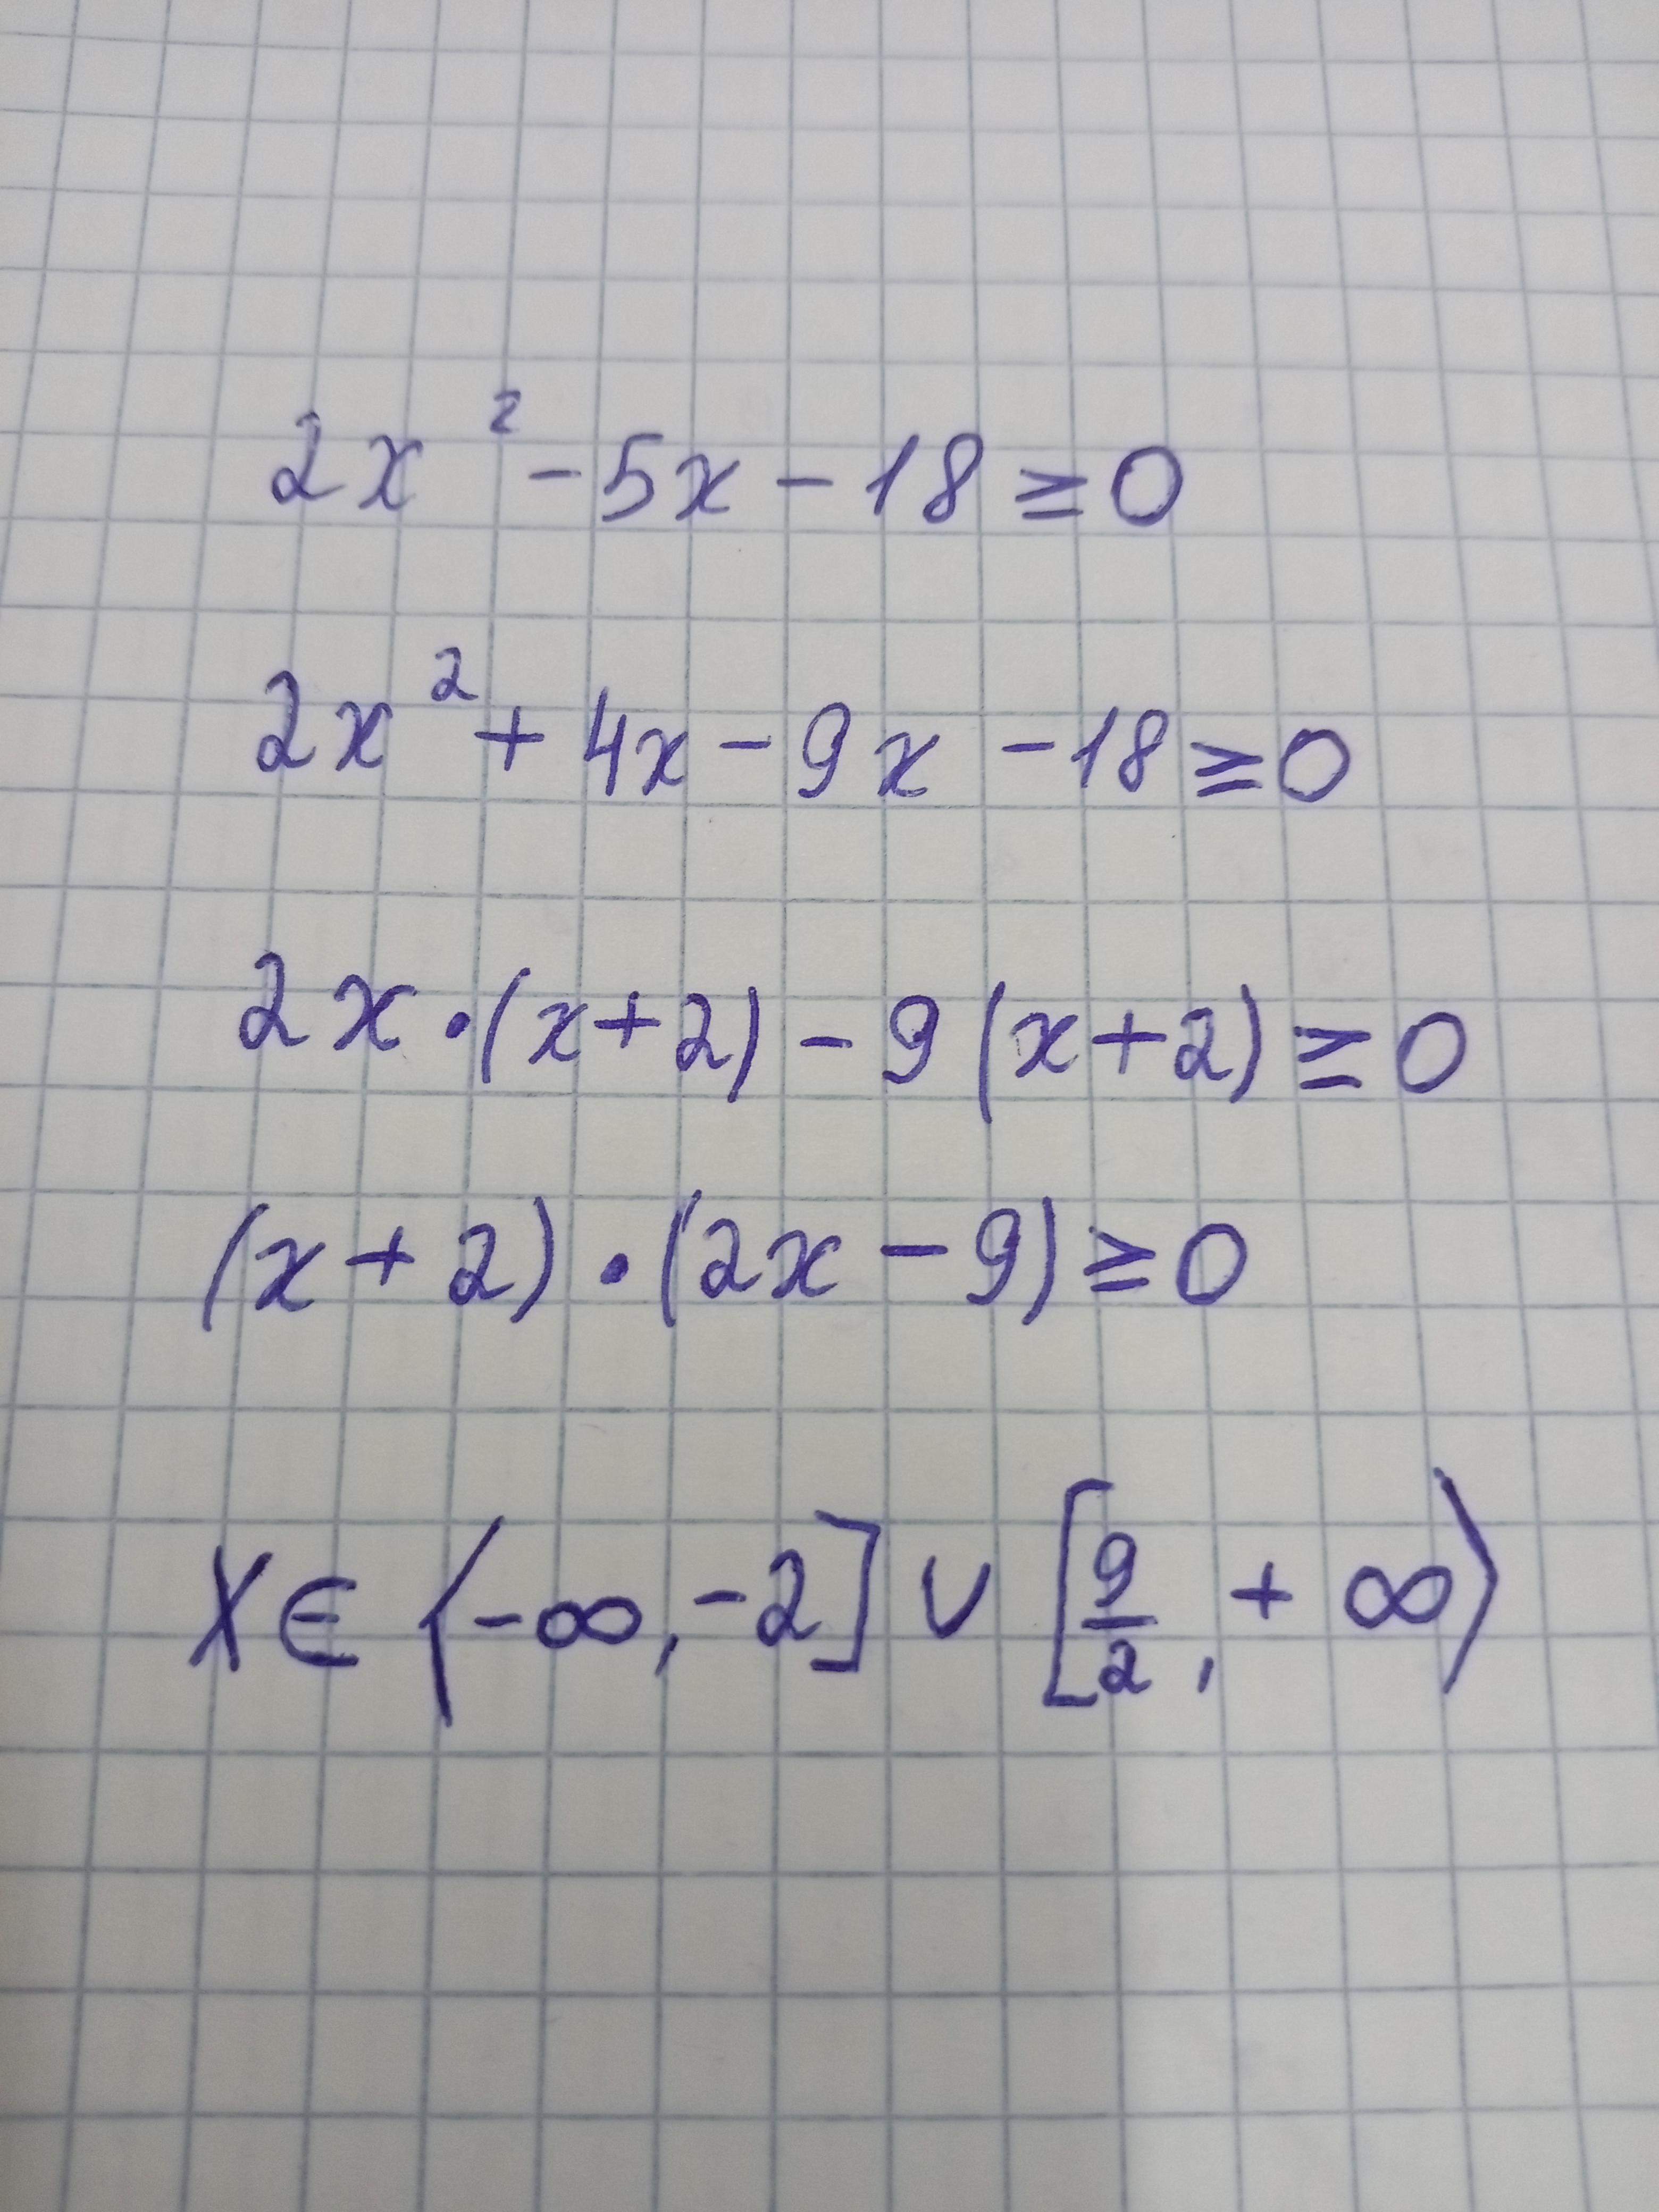 2x² - 5x - 18 ≥ 0
2x² + 4x - 9x - 18 ≥ 0
2x · (x + 2) - 9 (x + 2) ≥ 0
(x + 2) · (2x - 9) ≥ 0
x ∈ ⟨-∞, -2] ∪ [9/2, + ∞⟩